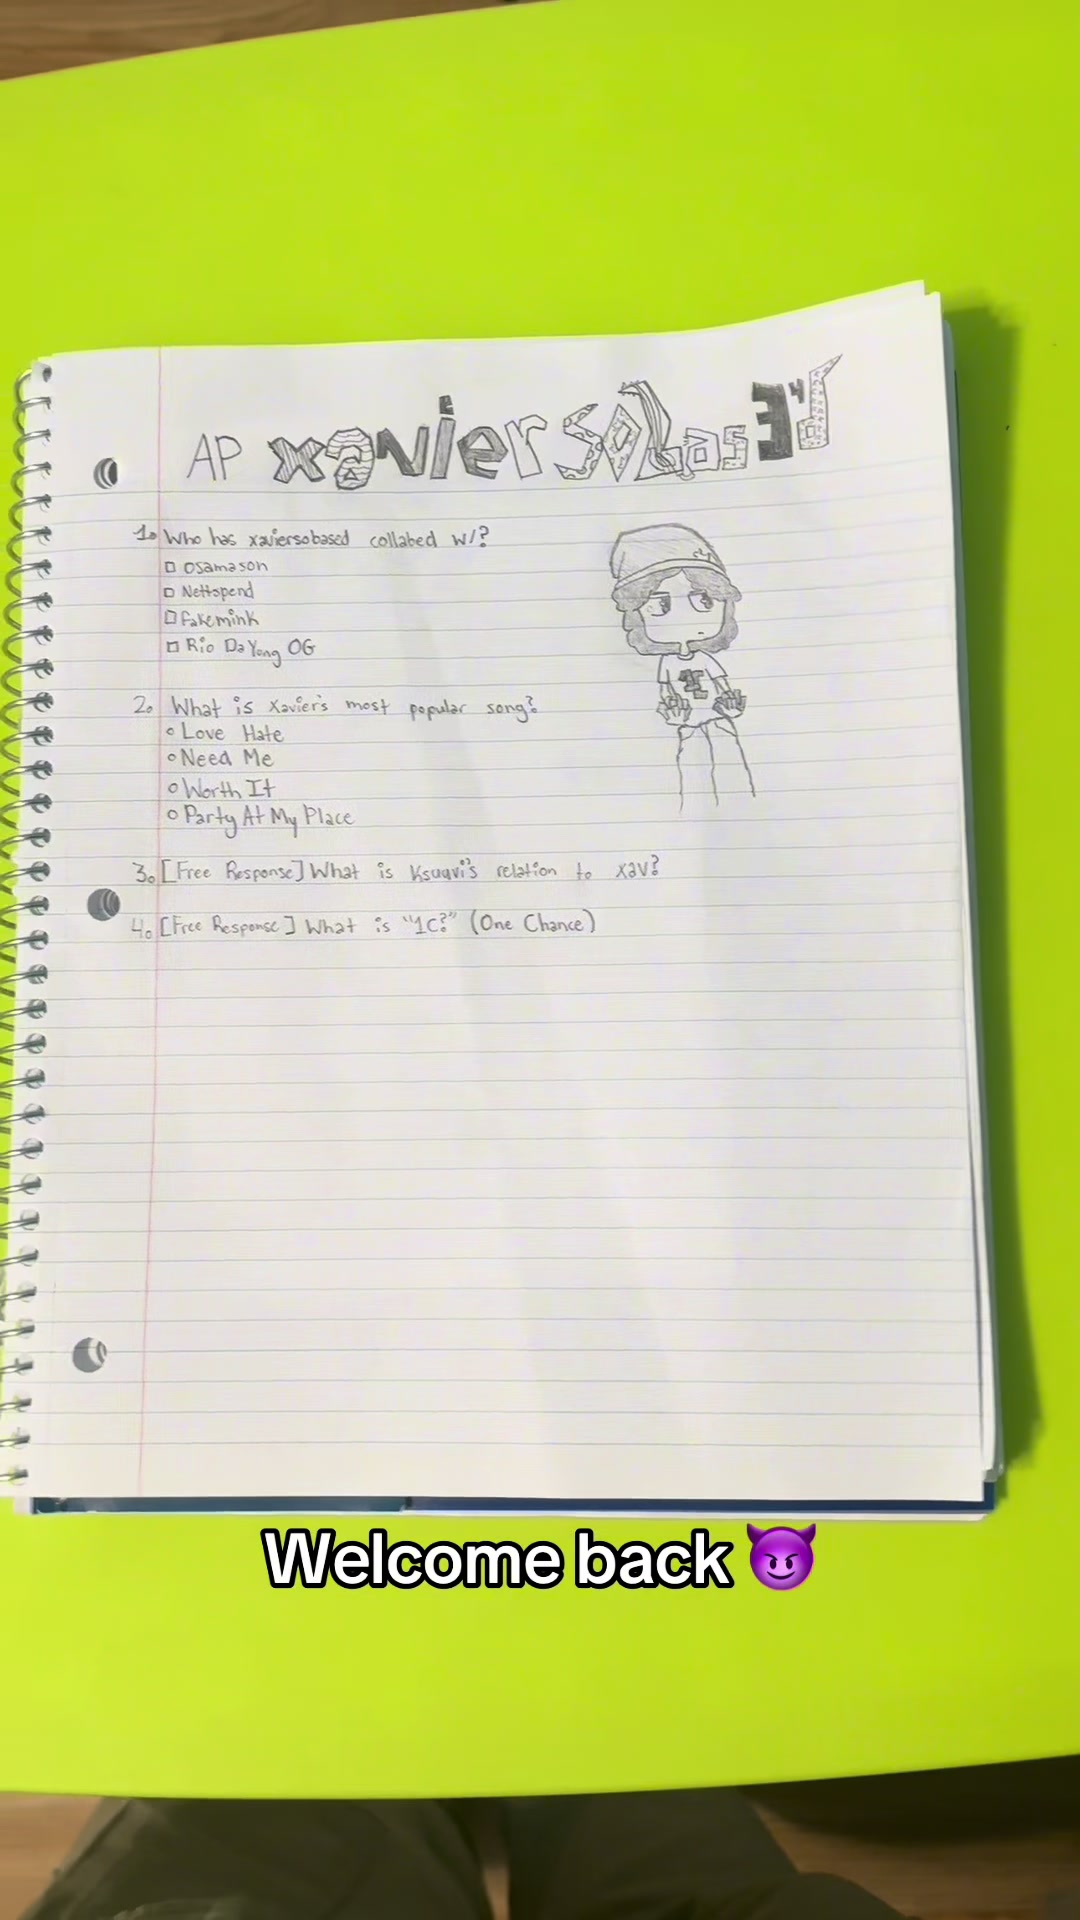 AP xaviersobased
1. Who has xaviersobased collabed w/?
□ Osamason
□ Nettspend
□ Fakemink
□ Rio Da Yung OG
2. What is Xavier's most popular song?
○ Love Hate
○ Need Me
○ Worth It
○ Party At My Place
3. [Free Response] What is Ksuuvi's relation to xav?
4. [Free Response] What is "1C?" (One Chance)
Welcome back 😈